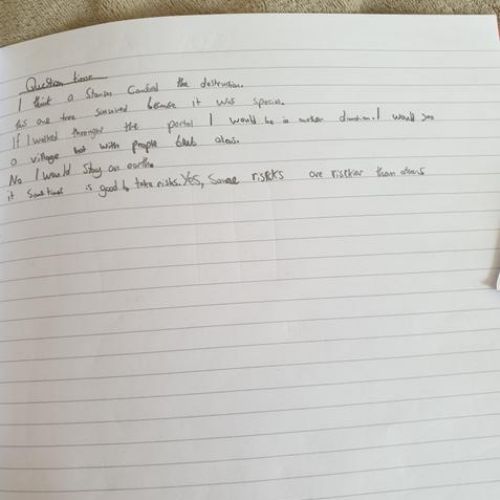 Question time
I think a Stories Caused the destruction.
this one tree survived because it was special.
If I walked through the portal I would be in another dimension. I would see
a village but with people aliens.
No I would stay on earth.
it sometimes is good to take risks. Yes, Some riskks are riskier than others